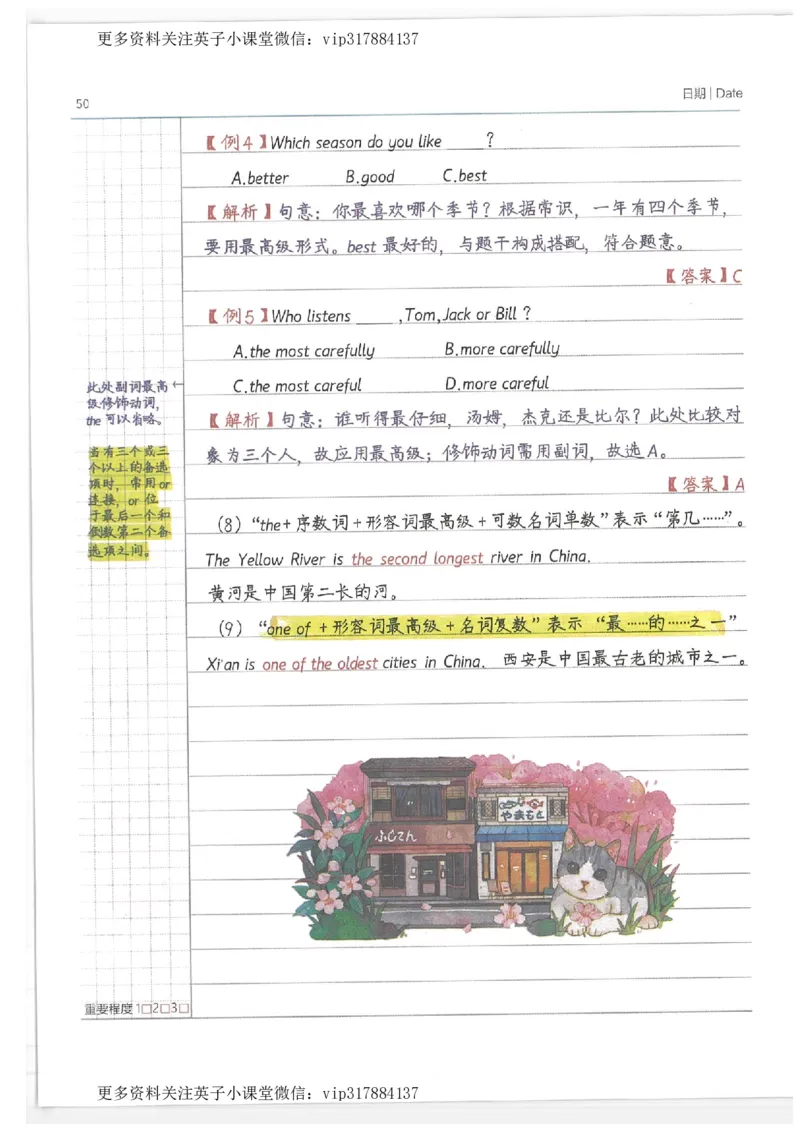 更多资料关注英子小课堂微信：vip317884137
50
日期 | Date
【例4】Which season do you like ____?
A.better B.good C.best
【解析】句意：你最喜欢哪个季节？根据常识，一年有四个季节，
要用最高级形式。best 最好的，与题干构成搭配，符合题意。
【答案】C
【例5】Who listens ____,Tom,Jack or Bill?
A.the most carefully B.more carefully
C.the most careful D.more careful
此处副词最高←
级修饰动词，
the 可以省略。
【解析】句意：谁听得最仔细，汤姆，杰克还是比尔？此处比较对
象为三个人，故应用最高级；修饰动词需用副词，故选 A。
【答案】A
当有三个或三
个以上的备选
项时，常用 or
连接，or 位
于最后一个和
倒数第二个备
选项之间。
（8）“the＋序数词＋形容词最高级＋可数名词单数”表示“第几……”。
The Yellow River is the second longest river in China.
黄河是中国第二长的河。
（9）“one of ＋形容词最高级＋名词复数”表示 “最……的……之一”
Xi'an is one of the oldest cities in China. 西安是中国最古老的城市之一。
ふじてん
やまもと
重要程度 1□2□3□
更多资料关注英子小课堂微信：vip317884137